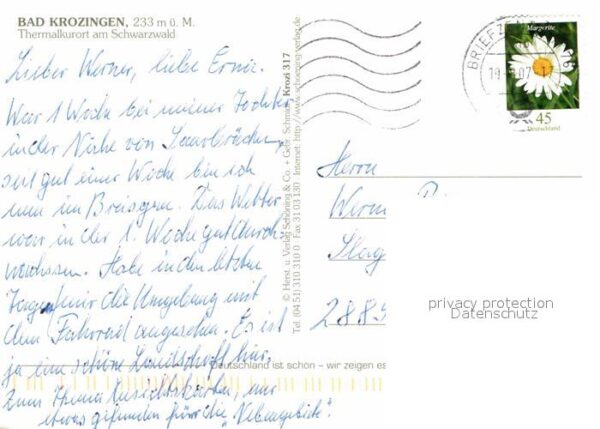 BAD KROZINGEN, 233 m ü. M.
Thermalkurort am Schwarzwald
Lieber Werner, liebe
War 1 Woche bei meiner Tochter
in der Nähe von Saarbrücken,
seit gut einer Woche bin ich
nun im Breisgau. Das Wetter
war in der 1. Woche gut durch-
wachsen. Habe in den letzten
Tagen mir die Umgebung mit
dem Fahrrad angesehen. Es ist
ja eine schöne Landschaft hier,
zum Thema Ansichtskarten, nur
etwas gefunden für die „Nebengebiete".
© Herst. u. Verlag Schöning & Co. + Gebr. Schmidt Krozi 317
Tel. (04 51) 310 310 0 Fax 31 03 130 Internet: http://www.schoening-verlag.de
eutschland ist schön – wir zeigen es
BRIEFZEN
07
Margerite
45
Deutschland
Herrn
Wern
P.
2885
privacy protection
Datenschutz